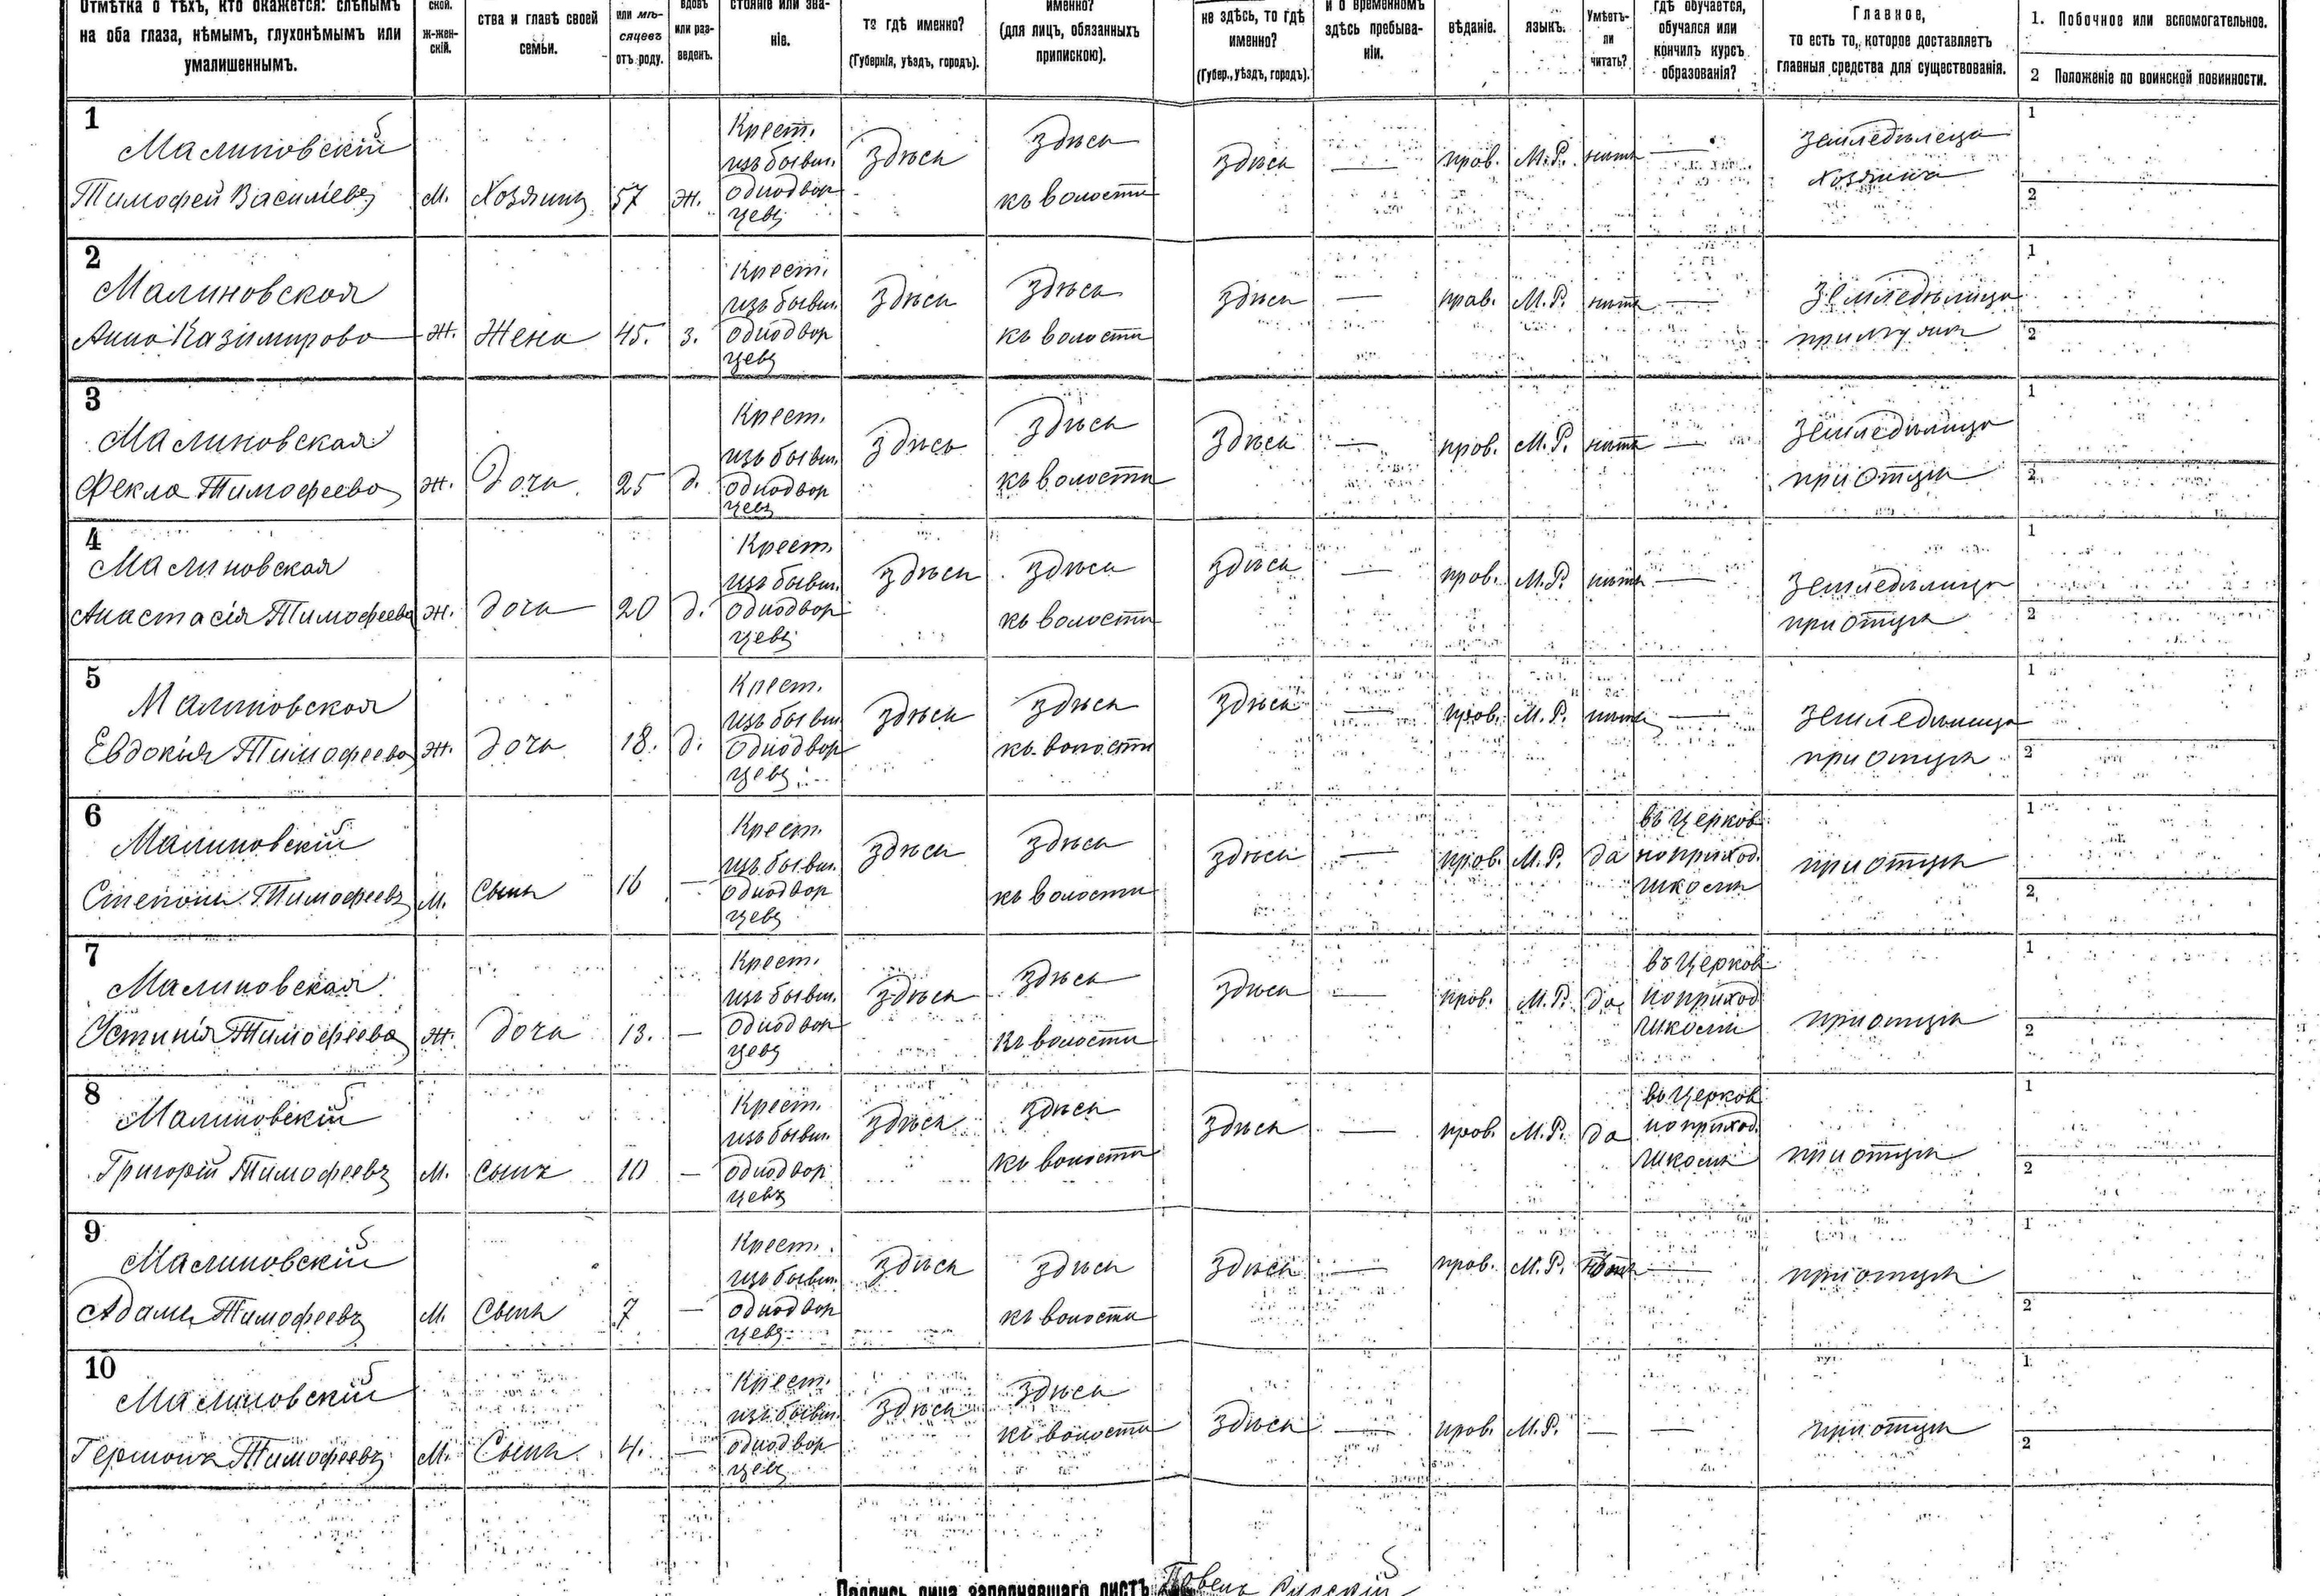 Отмѣтка о тѣхъ, кто окажется: слѣпымъ
на оба глаза, нѣмымъ, глухонѣмымъ или
умалишеннымъ.
ской.
ж-жен-
скій.
ства и главѣ своей
семьи.
или мѣ-
сяцевъ
отъ роду.
вдовъ
или раз-
веденъ.
стояніе или зва-
ніе.
то гдѣ именно?
(Губернія, уѣздъ, городъ).
именно?
(для лицъ, обязанныхъ
припискою).
не здѣсь, то гдѣ
именно?
(Губер., уѣздъ, городъ).
и о временномъ
здѣсь пребыва-
ніи.
вѣданіе.
языкъ.
Умѣетъ-
ли
читать?
гдѣ обучается,
обучался или
кончилъ курсъ
образованія?
Главное,
то есть то, которое доставляетъ
главныя средства для существованія.
1. Побочное или вспомогательное.
2 Положеніе по воинской повинности.
1
Малиновскій
Тимофей Васильевъ
М.
Хозяинъ
57
Ж.
Крест.
изъ бывш.
однодвор
цевъ
Здѣсь
Здѣсь
къ волости
Здѣсь
—
прав.
М.Р.
нѣтъ
—
Земледѣлецъ
хозяинъ
1
2
2
Малиновская
Анна Казимирова
Ж.
Жена
45.
З.
Крест.
изъ бывш.
однодвор
цевъ
Здѣсь
Здѣсь
къ волости
Здѣсь
—
прав.
М.Р.
нѣтъ
—
Земледѣлица
при мужѣ
1
2
3
Малиновская
Фекла Тимофеева
Ж.
Дочь
25
Д.
Крест.
изъ бывш.
однодвор
цевъ
Здѣсь
Здѣсь
къ волости
Здѣсь
—
прав.
М.Р.
нѣтъ
—
Земледѣлица
при отцѣ
1
2
4
Малиновская
Анастасія Тимофеева
Ж.
Дочь
20
Д.
Крест.
изъ бывш.
однодвор
цевъ
Здѣсь
Здѣсь
къ волости
Здѣсь
—
прав.
М.Р.
нѣтъ
—
Земледѣлица
при отцѣ
1
2
5
Малиновская
Евдокія Тимофеева
Ж.
Дочь
18.
Д.
Крест.
изъ бывш.
однодвор
цевъ
Здѣсь
Здѣсь
къ волости
Здѣсь
—
прав.
М.Р.
нѣтъ
—
Земледѣлица
при отцѣ
1
2
6
Малиновскій
Степанъ Тимофеевъ
М.
Сынъ
16
—
Крест.
изъ бывш.
однодвор
цевъ
Здѣсь
Здѣсь
къ волости
Здѣсь
—
прав.
М.Р.
да
въ Церков
но приход.
школѣ
при отцѣ
1
2
7
Малиновская
Устинія Тимофеева
Ж.
Дочь
13.
—
Крест.
изъ бывш.
однодвор
цевъ
Здѣсь
Здѣсь
къ волости
Здѣсь
—
прав.
М.Р.
да
въ Церков
но приход
школѣ
при отцѣ
1
2
8
Малиновскій
Григорій Тимофеевъ
М.
Сынъ
10
—
Крест.
изъ бывш.
однодвор
цевъ
Здѣсь
Здѣсь
къ волости
Здѣсь
—
прав.
М.Р.
да
въ Церков
но приход.
школѣ
при отцѣ
1
2
9
Малиновскій
Адамъ Тимофеевъ
М.
Сынъ
7
—
Крест.
изъ бывш.
однодвор
цевъ
Здѣсь
Здѣсь
къ волости
Здѣсь
—
прав.
М.Р.
нѣтъ
—
при отцѣ
1
2
10
Малиновскій
Тимофеевъ
М.
Сынъ
4.
—
Крест.
изъ бывш.
однодвор
цевъ
Здѣсь
Здѣсь
къ волости
Здѣсь
—
прав.
М.Р.
—
—
при отцѣ
1
2
Подпись лица заполнявшаго листъ